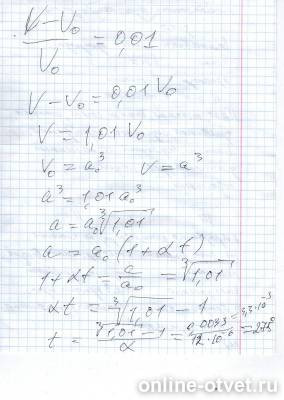 (V − V₀)/V₀ = 0,01
V − V₀ = 0,01 V₀
V = 1,01 V₀
V₀ = a₀³   V = a³
a³ = 1,01 a₀³
a = a₀ ∛1,01
a = a₀ (1 + αt)
1 + αt = a/a₀ = ∛1,01
αt = ∛1,01 − 1
t = (∛1,01 − 1)/α = 0,0033/(12·10⁻⁶) = 3,3·10⁻³ = 275°
online-otvet.ru